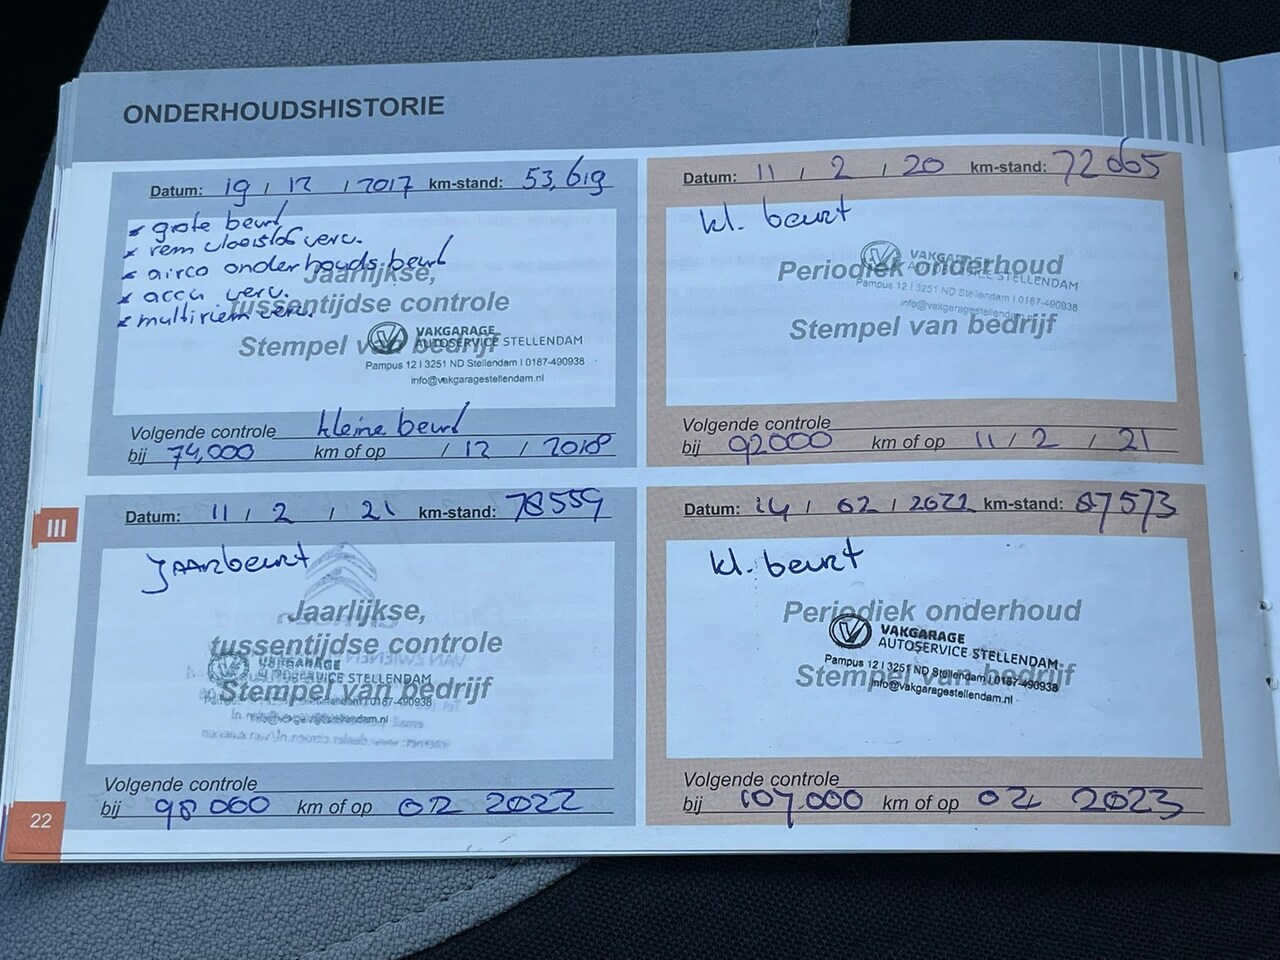 ONDERHOUDSHISTORIE
Datum: 19 / 12 / 2017 km-stand: 53,619
* grote beurt
* rem vloeistof verv.
* airco onderhoudsbeurt
* accu verv.
* multiriem verv.
Jaarlijkse,
tussentijdse controle
Stempel van bedrijf
VAKGARAGE
AUTOSERVICE STELLENDAM
Pampus 12 I 3251 ND Stellendam I 0187-490938
info@vakgaragestellendam.nl
Volgende controle kleine beurt
bij 74,000 km of op / 12 / 2018
Datum: 11 / 2 / 20 km-stand: 72065
kl. beurt
Periodiek onderhoud
Stempel van bedrijf
VAKGARAGE
AUTOSERVICE STELLENDAM
Pampus 12 I 3251 ND Stellendam I 0187-490938
info@vakgaragestellendam.nl
Volgende controle
bij 92000 km of op 11 / 2 / 21
Datum: 11 / 2 / 21 km-stand: 78559
Jaarbeurt
Jaarlijkse,
tussentijdse controle
Stempel van bedrijf
VAKGARAGE
AUTOSERVICE STELLENDAM
Pampus 0187-490938
info@vakgaragestellendam.nl
Volgende controle
bij 98000 km of op 02 2022
Datum: 14 / 02 / 2022 km-stand: 87573
kl. beurt
Periodiek onderhoud
Stempel van bedrijf
VAKGARAGE
AUTOSERVICE STELLENDAM
Pampus 12 I 3251 ND Stellendam I 0187-490938
info@vakgaragestellendam.nl
Volgende controle
bij 107.000 km of op 02 2023
III
22